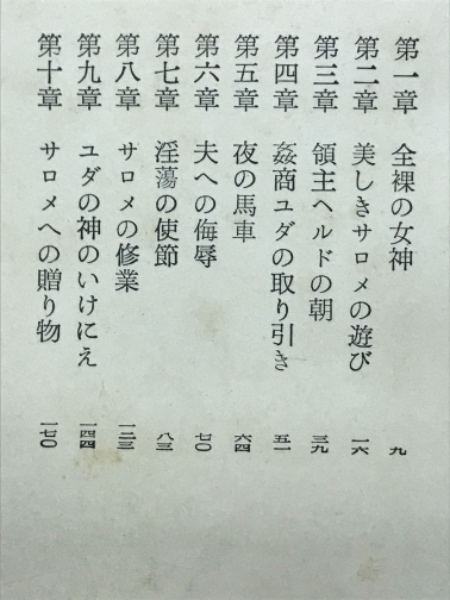 第一章 全裸の女神 九
第二章 美しきサロメの遊び 一六
第三章 領主ヘルドの朝 三九
第四章 姦商ユダの取り引き 五一
第五章 夜の馬車 六四
第六章 夫への侮辱 七〇
第七章 淫蕩の使節 八三
第八章 サロメの修業 一二三
第九章 ユダの神のいけにえ 一四四
第十章 サロメへの贈り物 一七〇